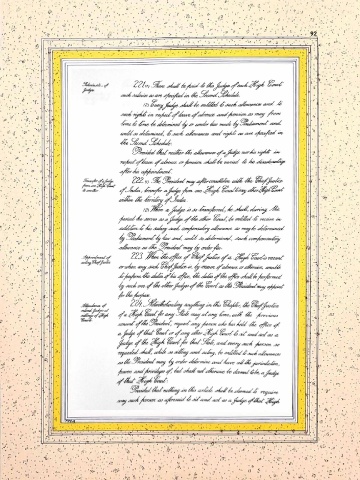 92
Salaries etc. of
Judges
221.(1) There shall be paid to the Judges of each High Court
such salaries as are specified in the Second Schedule.
(2) Every Judge shall be entitled to such allowances and to
such rights in respect of leave of absence and pension as may from
time to time be determined by or under law made by Parliament and,
until so determined, to such allowances and rights as are specified in
the Second Schedule:
Provided that neither the allowances of a Judge nor his rights in
respect of leave of absence or pension shall be varied to his disadvantage
after his appointment.
Transfer of a Judge
from one High Court
to another
222.(1) The President may after consultation with the Chief Justice
of India, transfer a Judge from one High Court to any other High Court
within the territory of India.
(2) When a Judge is so transferred, he shall, during the
period he serves as a Judge of the other Court, be entitled to receive in
addition to his salary such compensatory allowance as may be determined
by Parliament by law and, until so determined, such compensatory
allowance as the President may by order fix.
Appointment of
acting Chief Justice
223. When the office of Chief Justice of a High Court is vacant
or when any such Chief Justice is, by reason of absence or otherwise, unable
to perform the duties of his office, the duties of the office shall be performed
by such one of the other Judges of the Court as the President may appoint
for the purpose.
Attendance of
retired Judges at
sittings of High
Courts
224. Notwithstanding anything in this Chapter, the Chief Justice
of a High Court for any State may at any time, with the previous
consent of the President, request any person who has held the office of
a Judge of that Court or of any other High Court to sit and act as a
Judge of the High Court for that State, and every such person so
requested shall, while so sitting and acting, be entitled to such allowances
as the President may by order determine and have all the jurisdiction,
powers and privileges of, but shall not otherwise be deemed to be, a Judge
of that High Court:
Provided that nothing in this article shall be deemed to require
any such person as aforesaid to sit and act as a Judge of that High